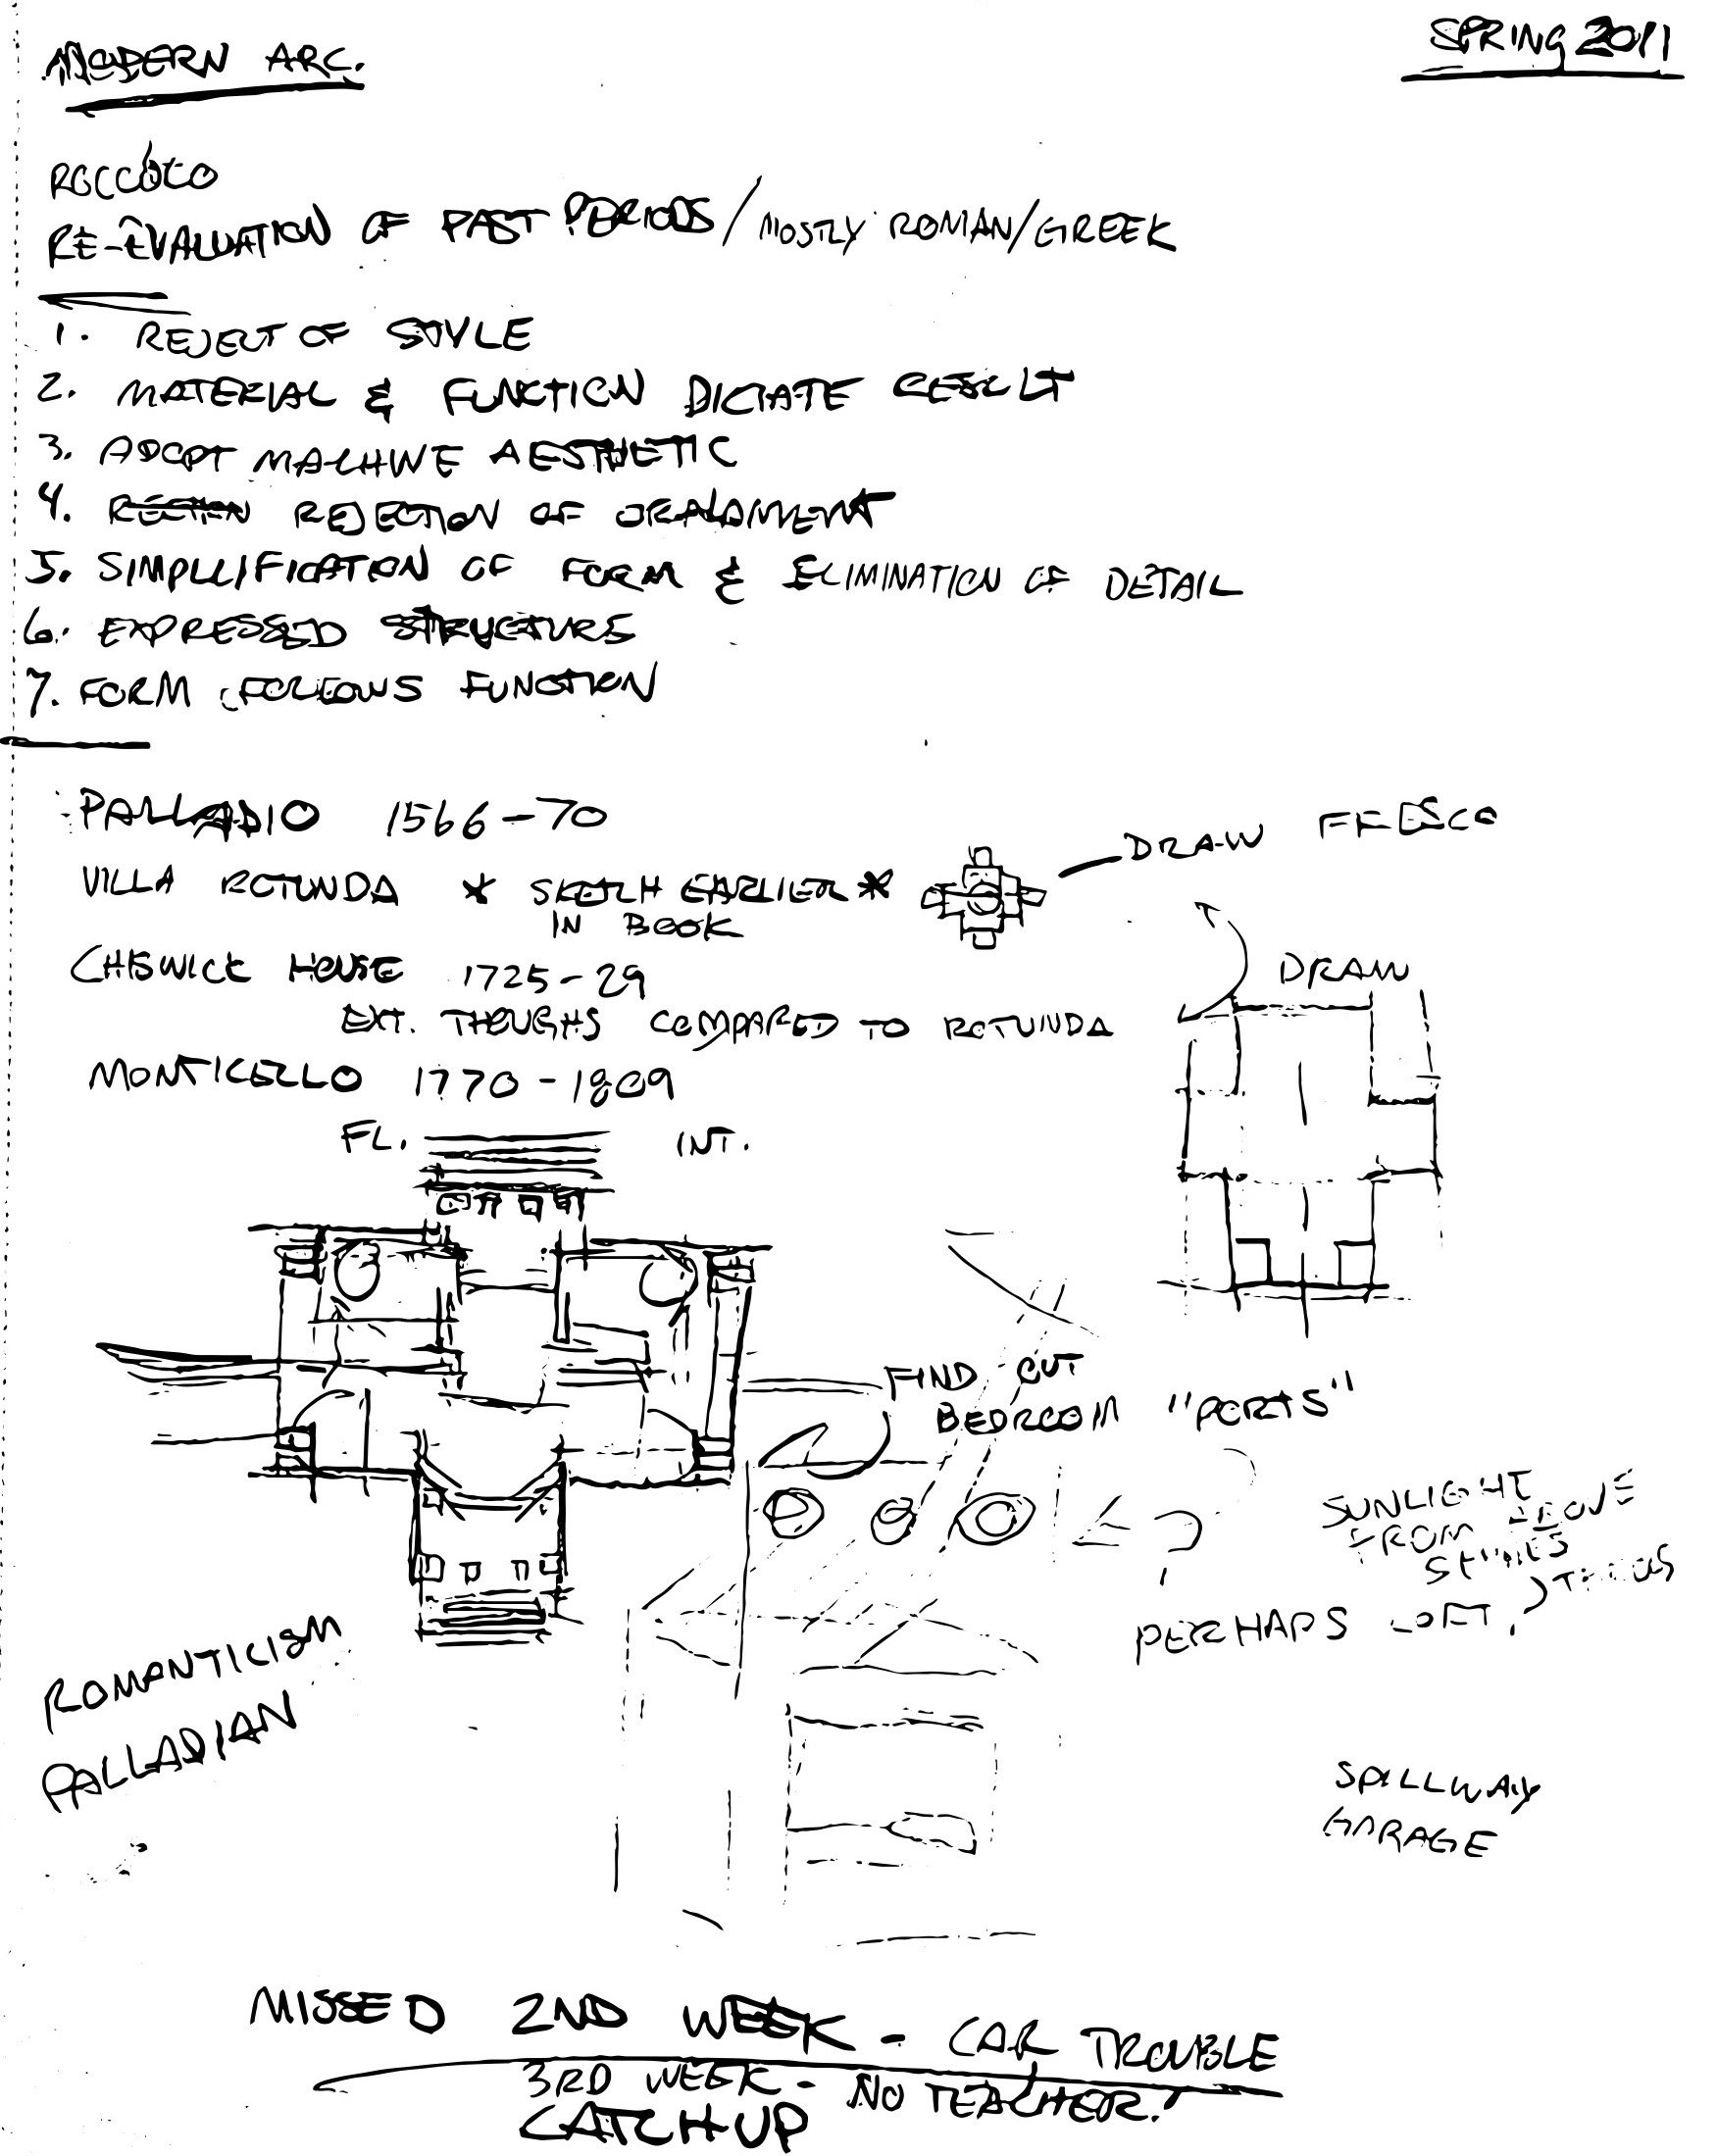 MODERN ARC.
SPRING 2011
ROCCOCO
RE-EVALUATION OF PAST PERIODS/MOSTLY ROMAN/GREEK
1. REJECT OF STYLE
2. MATERIAL & FUNCTION DICTATE RESULT
3. ADOPT MACHINE AESTHETIC
4. REJECTION OF ORNAMENT
5. SIMPLLIFICATION OF FORM & ELIMINATION OF DETAIL
6. EXPRESSED STRUCTURE
7. FORM FOLLOWS FUNCTION
PALLADIO 1566-70
DRAW FRESCO
VILLA ROTUNDA * SKETCH EARLIER *
IN BOOK
CHISWICK HOUSE 1725-29
DRAW
EXT. THOUGHS COMPARED TO ROTUNDA
MONTICELLO 1770-1809
FL. INT.
FIND OUT
BEDROOM "PORTS"
SUNLIGHT
FROM ABOVE
PERHAPS LOFT,
ROMANTICISM
PALLADIAN
SPILLWAY
GARAGE
MISSED 2ND WEEK - CAR TROUBLE
3RD WEEK - NO TEACHER!
CATCH UP